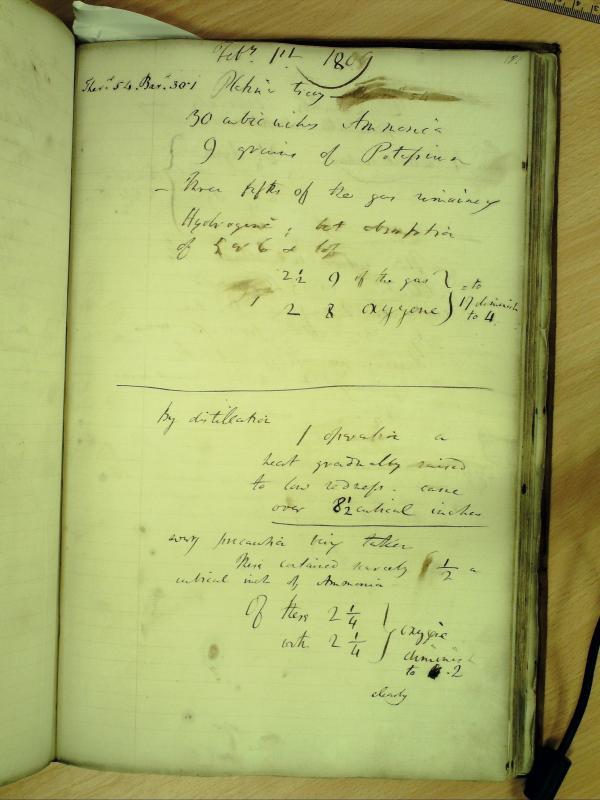 Feby 1st 1809
Ther. 54. Bar. 30.1 Platina tray
30 cubic inches Ammonia
9 grains of Potassium
– Three fifths of the gas remained
Hydrogene; but absorption
of 5 or 6 &
2½ 9 of the gas } = to
2 8 oxygene } 17 diminish
to 4.
By distillation
1 operation a
heat gradually raised
to low redness. came
over 8½ cubical inches
every precaution being taken
These contained scarcely ½ a
cubical inch of Ammonia
Of these 2 ¼ }
with 2 ¼ } oxygene
diminish
to .2
clearly